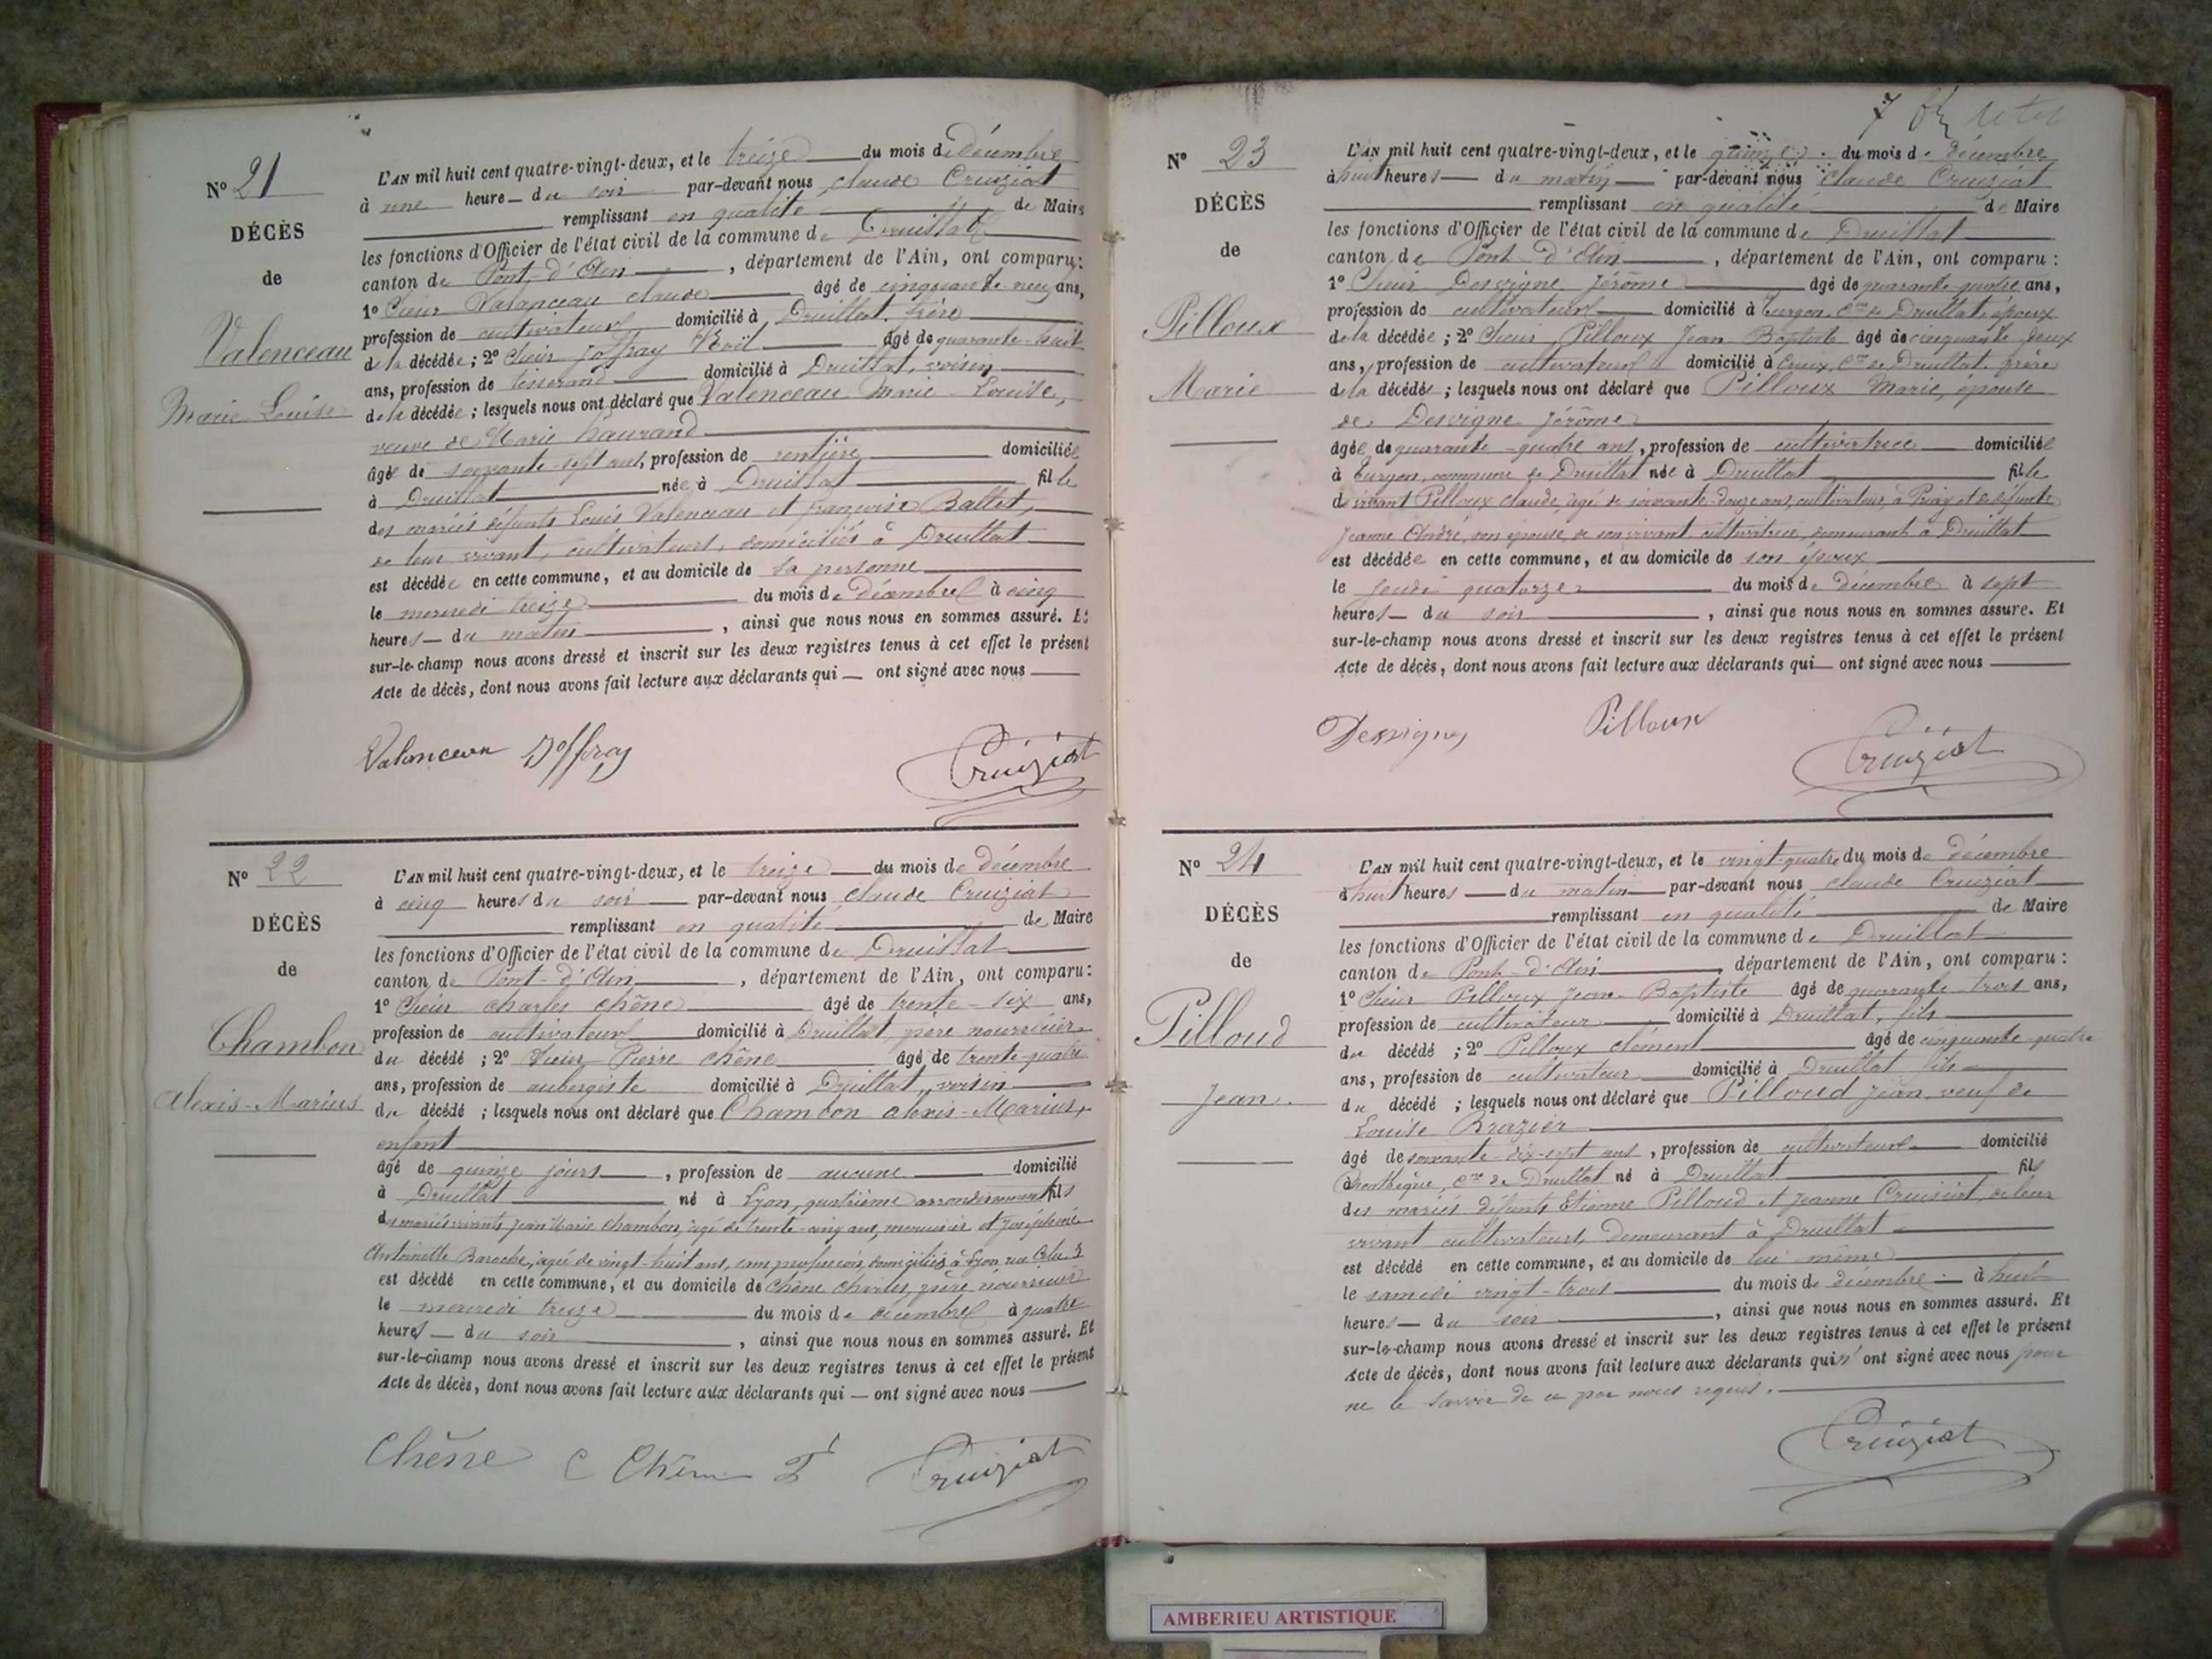 N° 21
DÉCÈS
de
Valenceau
Marie Louise
L'AN mil huit cent quatre-vingt-deux, et le treize du mois de décembre
à une heure du soir par-devant nous claude Cruiziat
remplissant en qualité de Maire
les fonctions d'Officier de l'état civil de la commune de Druillat
canton de Pont-d'Ain, département de l'Ain, ont comparu:
1° Sieur Valanceau claude âgé de cinquante-neuf ans,
profession de cultivateur domicilié à Druillat, frère
de la décédée; 2° Sieur Joffray Noël âgé de quarante-huit
ans, profession de tisserand domicilié à Druillat, voisin
de la décédée; lesquels nous ont déclaré que Valenceau Marie Louise,
veuve de Marie
âgée de soixante-sept ans, profession de rentière domiciliée
à Druillat née à Druillat fille
des mariés défunts Louis Valenceau et françoise Ballet,
de leur vivant, cultivateurs, domiciliés à Druillat
est décédée en cette commune, et au domicile de sa personne
le mercredi treize du mois de décembre à cinq
heures du matin, ainsi que nous nous en sommes assuré. Et
sur-le-champ nous avons dressé et inscrit sur les deux registres tenus à cet effet le présent
Acte de décès, dont nous avons fait lecture aux déclarants qui ont signé avec nous
Valenceau Joffray Cruiziat
N° 22
DÉCÈS
de
Chambon
Alexis-Marius
L'AN mil huit cent quatre-vingt-deux, et le treize du mois de décembre
à cinq heures du soir par-devant nous claude Cruiziat
remplissant en qualité de Maire
les fonctions d'Officier de l'état civil de la commune de Druillat
canton de Pont-d'Ain, département de l'Ain, ont comparu:
1° Sieur charles chêne âgé de trente-six ans,
profession de cultivateur domicilié à Druillat, père nourricier
du décédé; 2° Sieur Pierre chêne âgé de trente-quatre
ans, profession de aubergiste domicilié à Druillat, voisin
du décédé; lesquels nous ont déclaré que Chambon alexis-Marius,
enfant
âgé de quinze jours, profession de aucune domicilié
à Druillat né à Lyon, quatrième arrondissement fils
des mariés vivants Jean Marie Chambon, âgé de trente-cinq ans, menuisier et Joséphine
Antoinette Baroche, âgée de vingt-huit ans, sans profession, domiciliés à Lyon, rue 3
est décédé en cette commune, et au domicile de Chêne Charles, père nourricier
le mercredi treize du mois de décembre à quatre
heures du soir, ainsi que nous nous en sommes assuré. Et
sur-le-champ nous avons dressé et inscrit sur les deux registres tenus à cet effet le présent
Acte de décès, dont nous avons fait lecture aux déclarants qui ont signé avec nous
Chêne C Chêne P Cruiziat
7
N° 23
DÉCÈS
de
Pilloux
Marie
L'AN mil huit cent quatre-vingt-deux, et le quinze du mois de décembre
à huit heures du matin par-devant nous Claude Cruiziat
remplissant en qualité de Maire
les fonctions d'Officier de l'état civil de la commune de Druillat
canton de Pont-d'Ain, département de l'Ain, ont comparu:
1° Sieur Desvigne Jérôme âgé de quarante quatre ans,
profession de cultivateur domicilié à Turgon, Cne de Druillat, époux
de la décédée; 2° Sieur Pilloux Jean Baptiste âgé de cinquante deux
ans, profession de cultivateur domicilié à Cne de Druillat, frère
de la décédée; lesquels nous ont déclaré que Pilloux Marie, épouse
de Desvigne Jérôme
âgée de quarante-quatre ans, profession de cultivatrice domiciliée
à Turgon, commune de Druillat née à Druillat fille
de vivant Pilloux claude, âgé de soixante-douze ans, cultivateur, à Priay et de défunte
Jeanne André, son épouse, de son vivant cultivatrice, demeurant à Druillat
est décédée en cette commune, et au domicile de son époux
le jeudi quatorze du mois de décembre à sept
heures du soir, ainsi que nous nous en sommes assuré. Et
sur-le-champ nous avons dressé et inscrit sur les deux registres tenus à cet effet le présent
Acte de décès, dont nous avons fait lecture aux déclarants qui ont signé avec nous
Desvignes Pilloux Cruiziat
N° 24
DÉCÈS
de
Pilloud
Jean.
L'AN mil huit cent quatre-vingt-deux, et le vingt-quatre du mois de décembre
à huit heures du matin par-devant nous claude Cruiziat
remplissant en qualité de Maire
les fonctions d'Officier de l'état civil de la commune de Druillat
canton de Pont-d'Ain, département de l'Ain, ont comparu:
1° Sieur Pilloux Jean-Baptiste âgé de quarante-trois ans,
profession de cultivateur domicilié à Druillat, fils
du décédé; 2° Pilloux clément âgé de cinquante quatre
ans, profession de cultivateur domicilié à Druillat fils
du décédé; lesquels nous ont déclaré que Pilloud Jean veuf de
Louise Brazier
âgé de soixante-dix-sept ans, profession de cultivateur domicilié
Cne de Druillat né à Druillat fils
des mariés défunts Etienne Pilloud et Jeanne Cruiziat, de leur
vivant cultivateurs, demeurant à Druillat
est décédé en cette commune, et au domicile de lui même
le samedi vingt-trois du mois de décembre à huit
heures du soir, ainsi que nous nous en sommes assuré. Et
sur-le-champ nous avons dressé et inscrit sur les deux registres tenus à cet effet le présent
Acte de décès, dont nous avons fait lecture aux déclarants qui n'ont signé avec nous pour
ne le savoir de ce par nous requis.
Cruiziat
AMBERIEU ARTISTIQUE